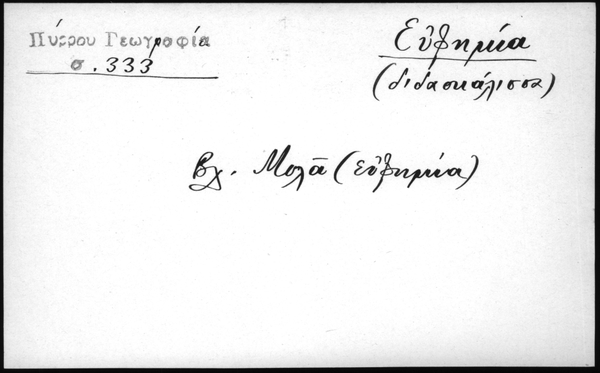 Πύρρου Γεωγραφία
σ. 333
Εὐφημία
(διδασκάλισσα)
Βλ. Μολᾶ (Εὐφημία)